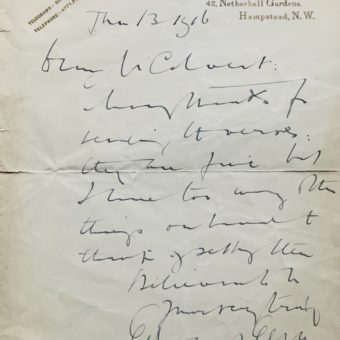 42, Netherhall Gardens,
Hampstead, N.W.
13 1916
Dear Mr Calvert:
Many thanks for
sending the verses:
they are fine but
I have too many other
things on hand to
think of setting them
Believe me to be
Yours very truly